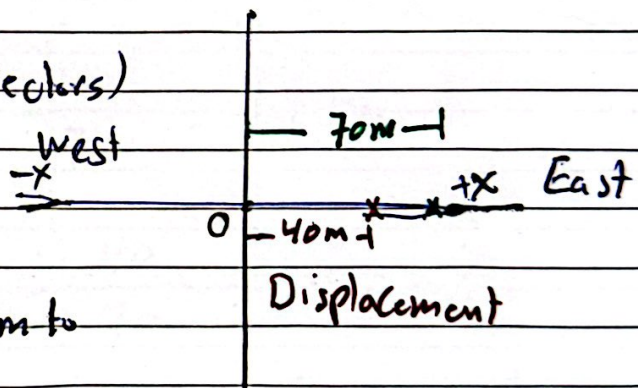 ectors)
70m
West
-x
+x East
O
40m
Displacement
m to